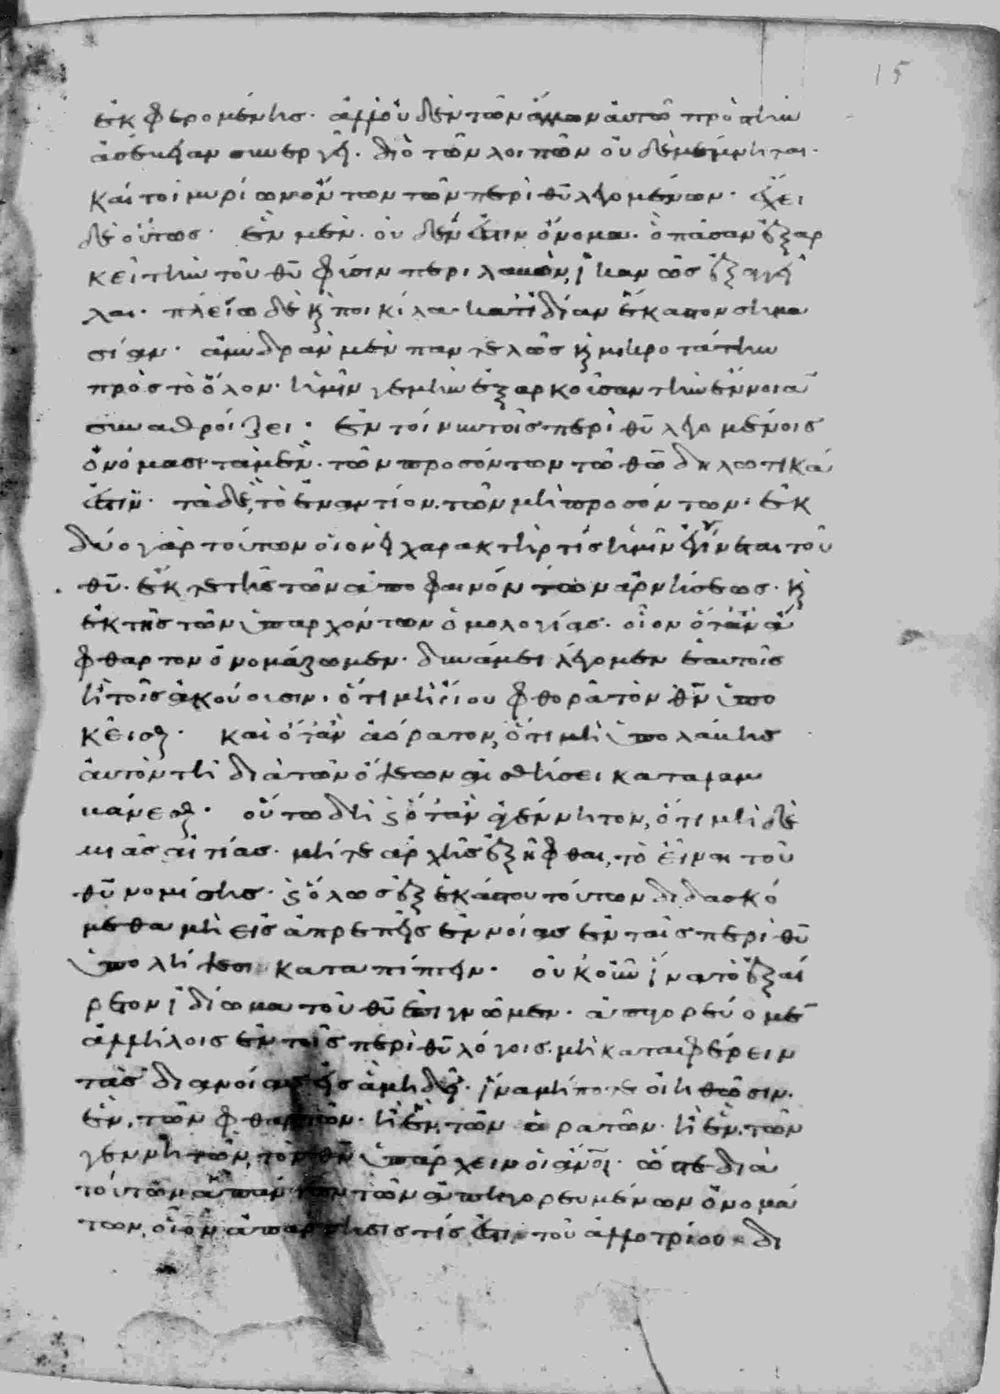 15
ἐκφερομένης· ἀλλ' οὐδὲν τῶν ἄλλων αὐτῶ πρὸς τὴν
ἀσέβειαν συνεργεῖ· διὸ τῶν λοιπῶν οὐδὲ μέμνηται·
καίτοι μυρίων ὄντων τῶν περὶ θῦ λεγομένων· ἔχει
δὲ οὕτως· ἓν μὲν· οὐδέν ἐστιν ὄνομα· ὃ πᾶσαν ἐξαρ
κεῖ τὴν τοῦ θῦ φύσιν περιλαβὸν, ἱκανῶς ἐξαγγεῖ
λαι· πλείω δὲ κ ποικίλα· κατ' ἰδίαν ἕκαστον σημα
σίαν· ἀμυδρὰν μὲν παντελῶς κ μικροτάτην
πρὸς τὸ ὅλον· ἡμῖν γε μὴν ἐξαρκοῦσαν τὴν ἔννοιαν
συναθροίζει· ἐν τοίνυν τοῖς περὶ θῦ λεγομένοις
ὀνόμασι· τὰ μὲν· τῶν προσόντων τῶ θῶ δηλωτικά
ἐστιν· τὰ δὲ, τὸ ἐναντίον τῶν μὴ προσόντων· ἐκ
δύο γὰρ τούτων οἱονεὶ χαρακτήρ τις ἡμῖν ἐγγίνεται τοῦ
θῦ· ἔκ τε τῆς τῶν ἀπεμφαινόντων ἀρνήσεως· κ
ἐκ τῆς τῶν ὑπαρχόντων ὁμολογίας· οἷον ὅταν ἄ
φθαρτον ὀνομάζωμεν· δυνάμει λέγομεν ἑαυτοῖς
ἢ τοῖς ἀκούουσιν· ὅτι μὴ οἴου φθορᾶ τὸν θν ὑπο
κεῖσθαι· καὶ ὅταν ἀόρατον, ὅτι μὴ ὑπολάβῃς
αὐτὸν τῆ διὰ τῶν ὄψεων αἰσθήσει καταλαμ
βάνεσθαι· οὕτω δὴ κ ὅταν ἀγέννητον, ὅτι μηδὲ
μιᾶς αἰτίας· μήτε ἀρχῆς ἐξῆφθαι, τὸ εἶναι τοῦ
θῦ νομίσῃς· κ ὅλως ἐξ ἑκάστου τούτων διδασκό
μεθα μὴ εἰς ἀπρεπεῖς ἐννοίας ἐν ταῖς περὶ θῦ
ὑπολήψεσι καταπίπτειν· οὐκοῦν ἵνα τὸ ἐξαί
ρετον ἰδίωμα τοῦ θῦ ἐπιγνῶμεν· ἀπαγορεύομεν
ἀλλήλοις ἐν τοῖς περὶ θῦ λόγοις· μὴ καταφέρειν
τὰς διανοίας εἰς ἃ μὴ δεῖ· ἵνα μήποτε οἰηθῶσιν·
ἓν, τῶν φθαρτῶν· ἢ ἓν, τῶν ὁρατῶν· ἢ ἓν, τῶν
γεννητῶν, τὸν θν ὑπάρχειν οἱ ἄνοι· ὥστε διὰ
τούτων ἁπάντων τῶν ἀπηγορευμένων ὀνομά
των, οἷον ἀπάρνησίς τίς ἐστι τοῦ ἀλλοτρίου· δι